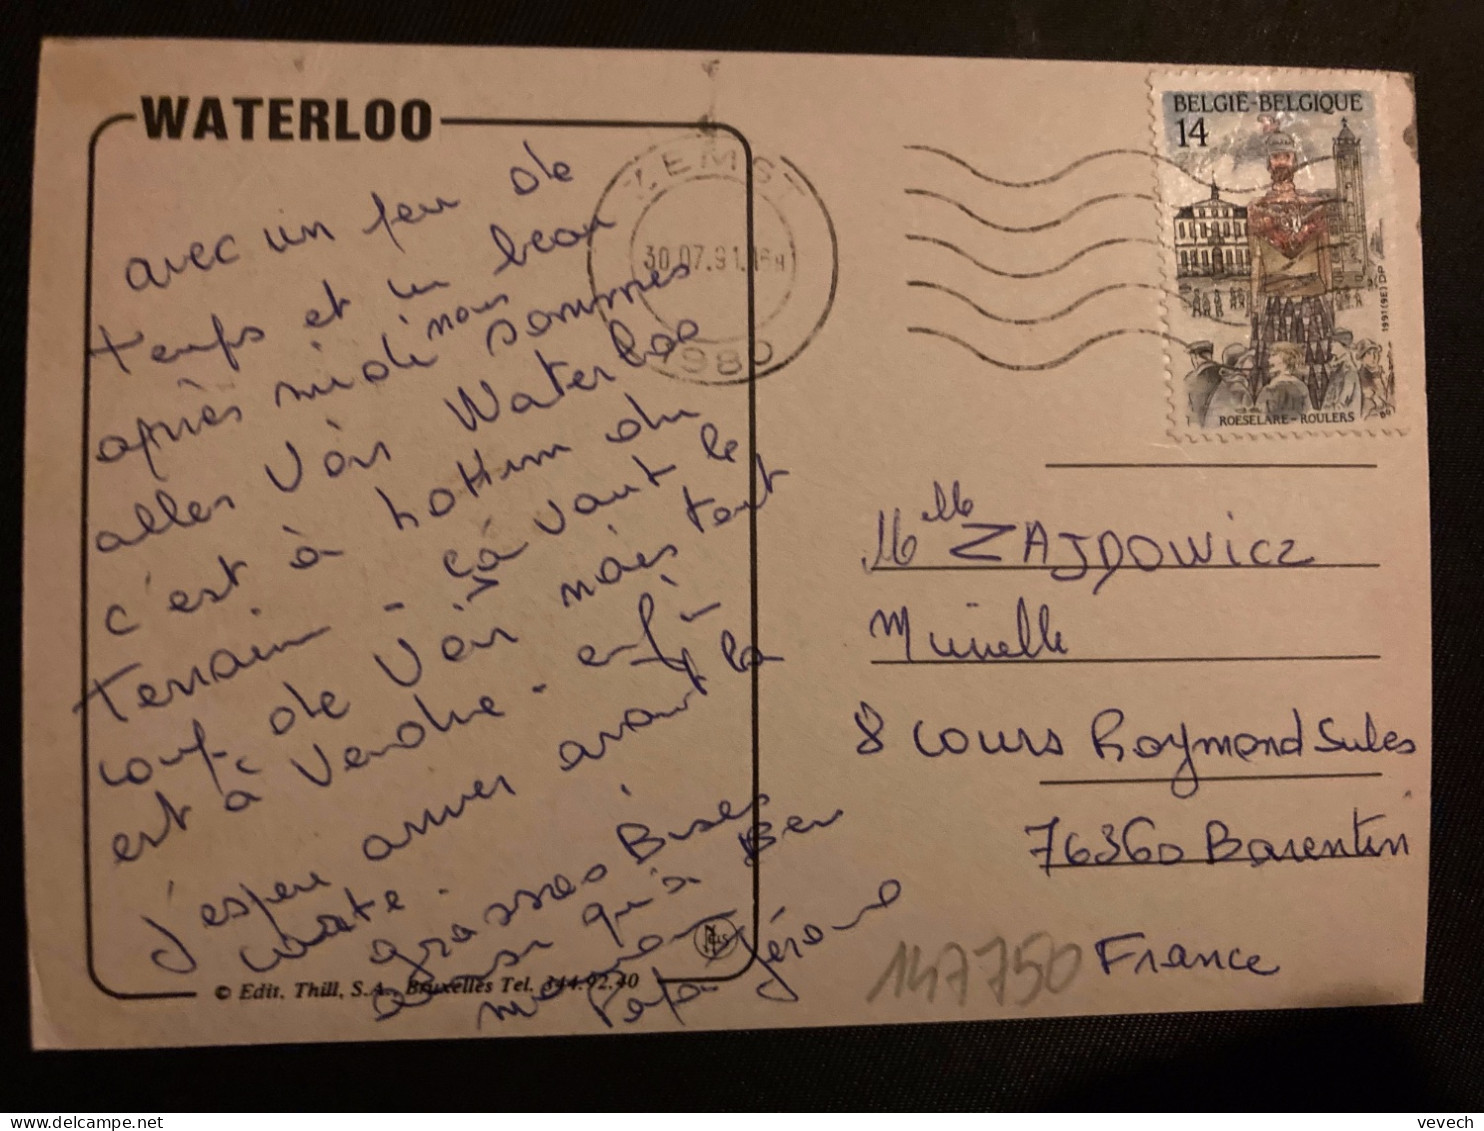 WATERLOO
avec un peu de
temps et un beau
après midi nous sommes
alles Voir Waterloo
c'est à hottum du
terrain - ça vaut le
coup de Voir mais tout
est à Vendre - enfin
j'espere arriver avant la
carte.
grosses Bises
ainsi qu'à Ben
maman
Papa Jérome
© Edit. Thill, S.A., Bruxelles Tel. 344.92.40
ZEMST
30.07.91.16H
1980
BELGIË-BELGIQUE
14
1991(9E) DP
ROESELARE-ROULERS
Melle ZAJDOWICZ
Murielle
8 cours Raymond Sules
76360 Barentin
France
147750
vevech